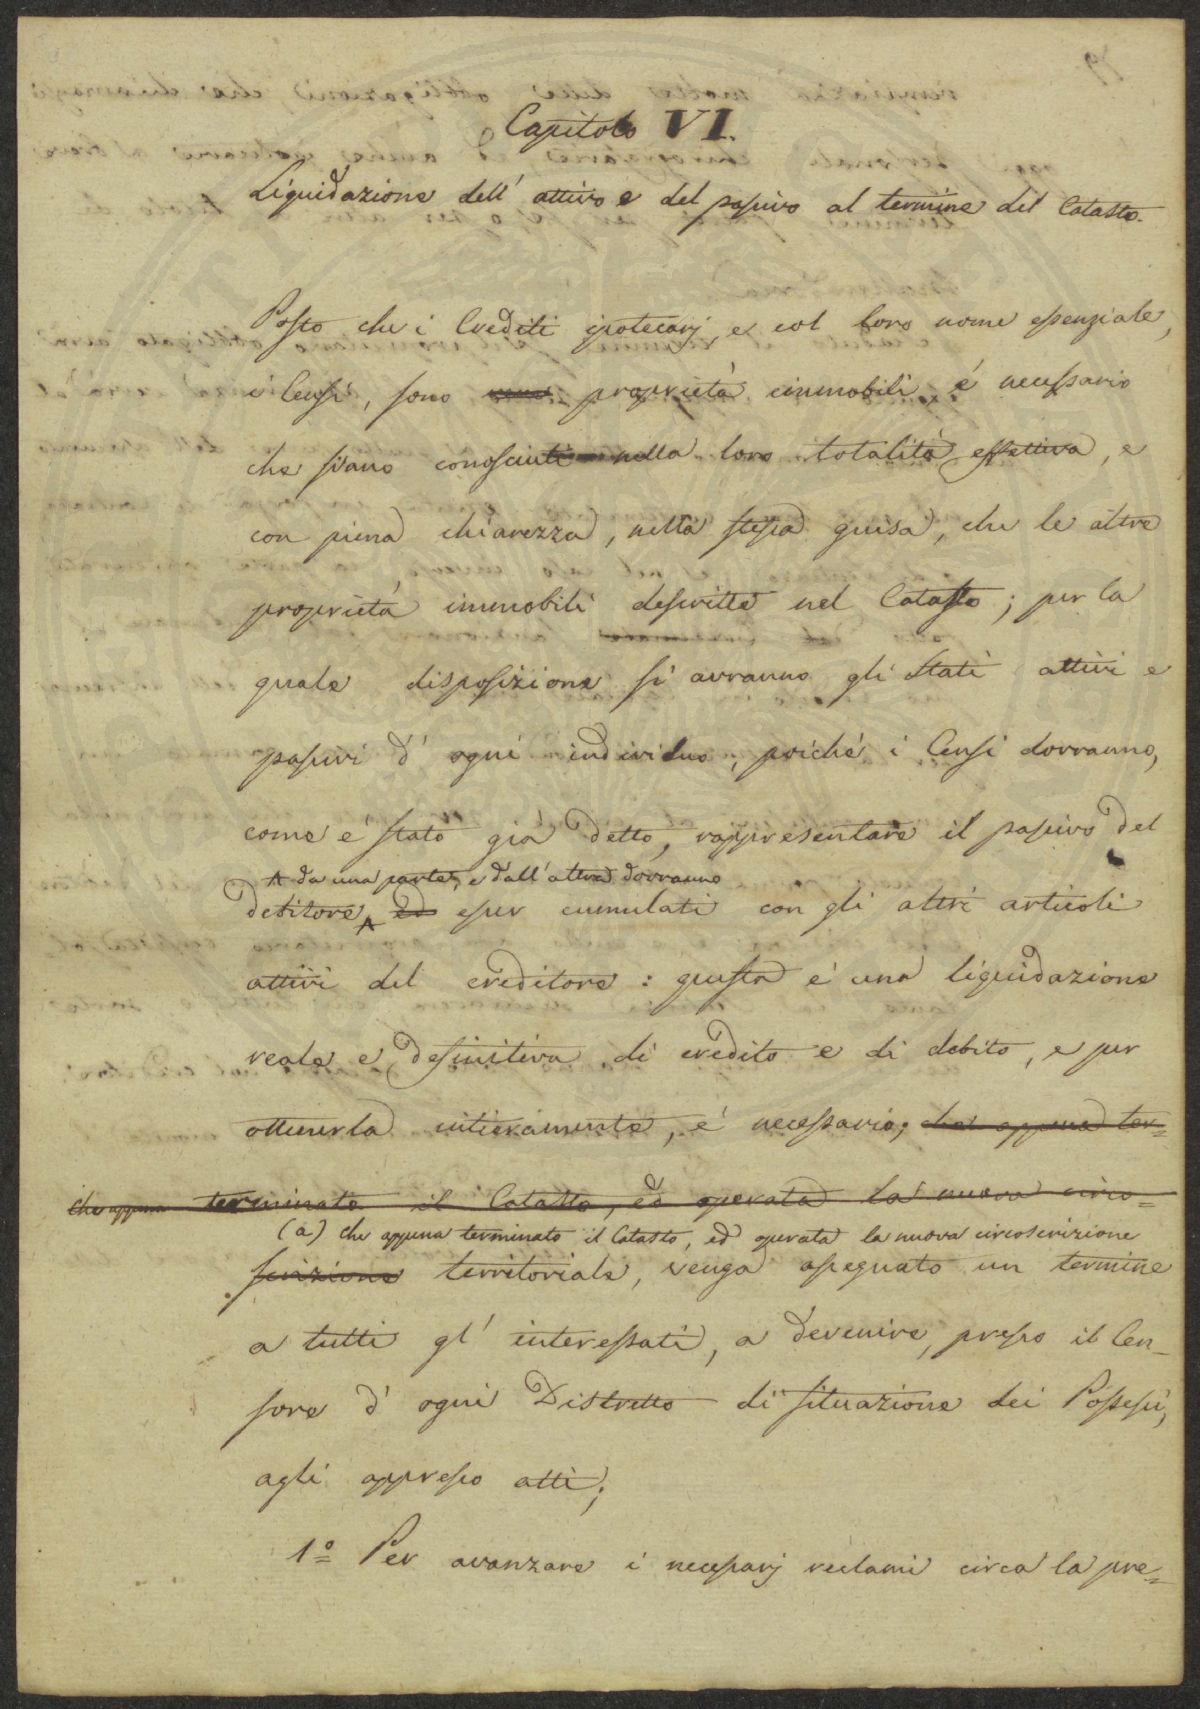 Capitolo VI.
Liquidazione dell' attivo e del passivo al termine del Catasto.
Posto che i Crediti ipotecarj, e col loro nome essenziale,
i Censi, sono proprietà immobili, é necessario
che siano conosciuti nella loro totalità effettiva, e
con piena chiarezza, nella stessa guisa, che le altre
proprietà immobili descritte nel Catasto; per la
quale disposizione si avranno gli stati attivi e
passivi d' ogni individuo, poiché i Censi dovranno,
come e' stato già detto, rappresentare il passivo del
A da una parte, e dall' altra dovranno
debitore, A ed esser cumulati con gli altri articoli
attivi del creditore: questa é una liquidazione
reale e definitiva di credito e di debito, e per
ottenerla intieramente, é necessario; che appena ter=
che appena terminato il Catasto, ed operata la nuova circo=
(a) che appena terminato il Catasto, ed operata la nuova circoscrizione
scrizione territoriale, venga assegnato un termine
a tutti gl' interessati, a devenire, presso il Cen=
sore d' ogni Distretto di situazione dei Possessi,
agli appresso atti;
1º Per avanzare i necessarj reclami circa la pre=